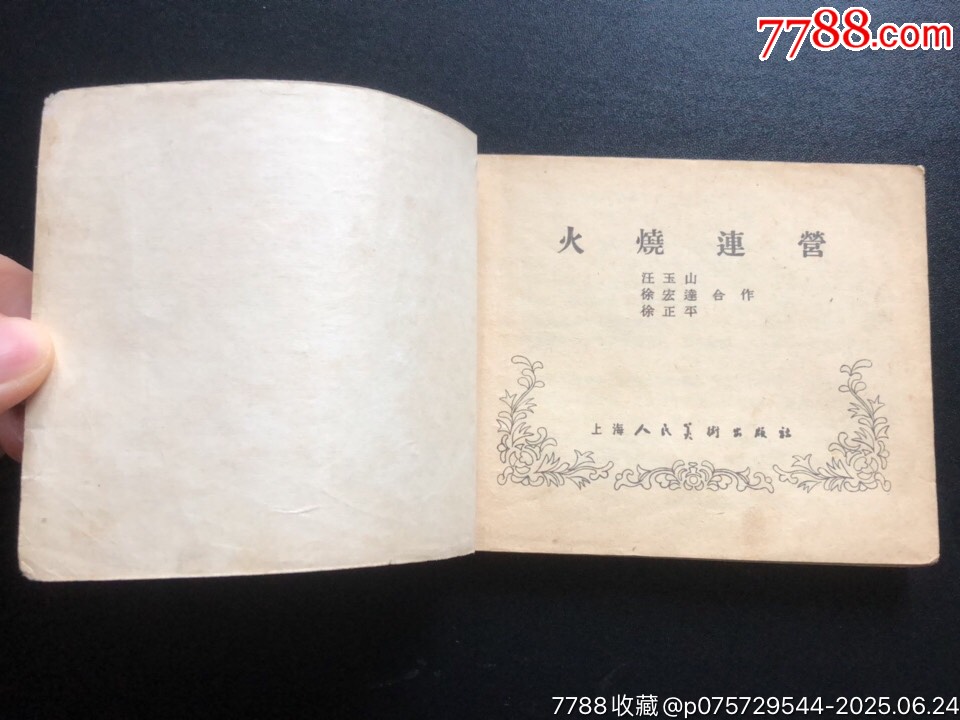 7788.com
火燒連營
汪玉山
徐宏達合作
徐正平
上海人民美術出版社
7788收藏@p075729544-2025.06.24